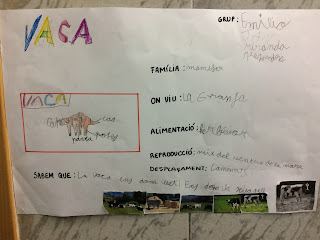 VACA
GRUP: Emilio
Miranda
FAMÍLIA: mamifer
VACA
ON VIU: LA Granja
cap
potes
panxa
ALIMENTACIÓ: herbívor
REPRODUCCIÓ: neix del ventre de la mare
DESPLAÇAMENT: Caminant
SABEM QUE: La vaca ens dona llet! Ens dona